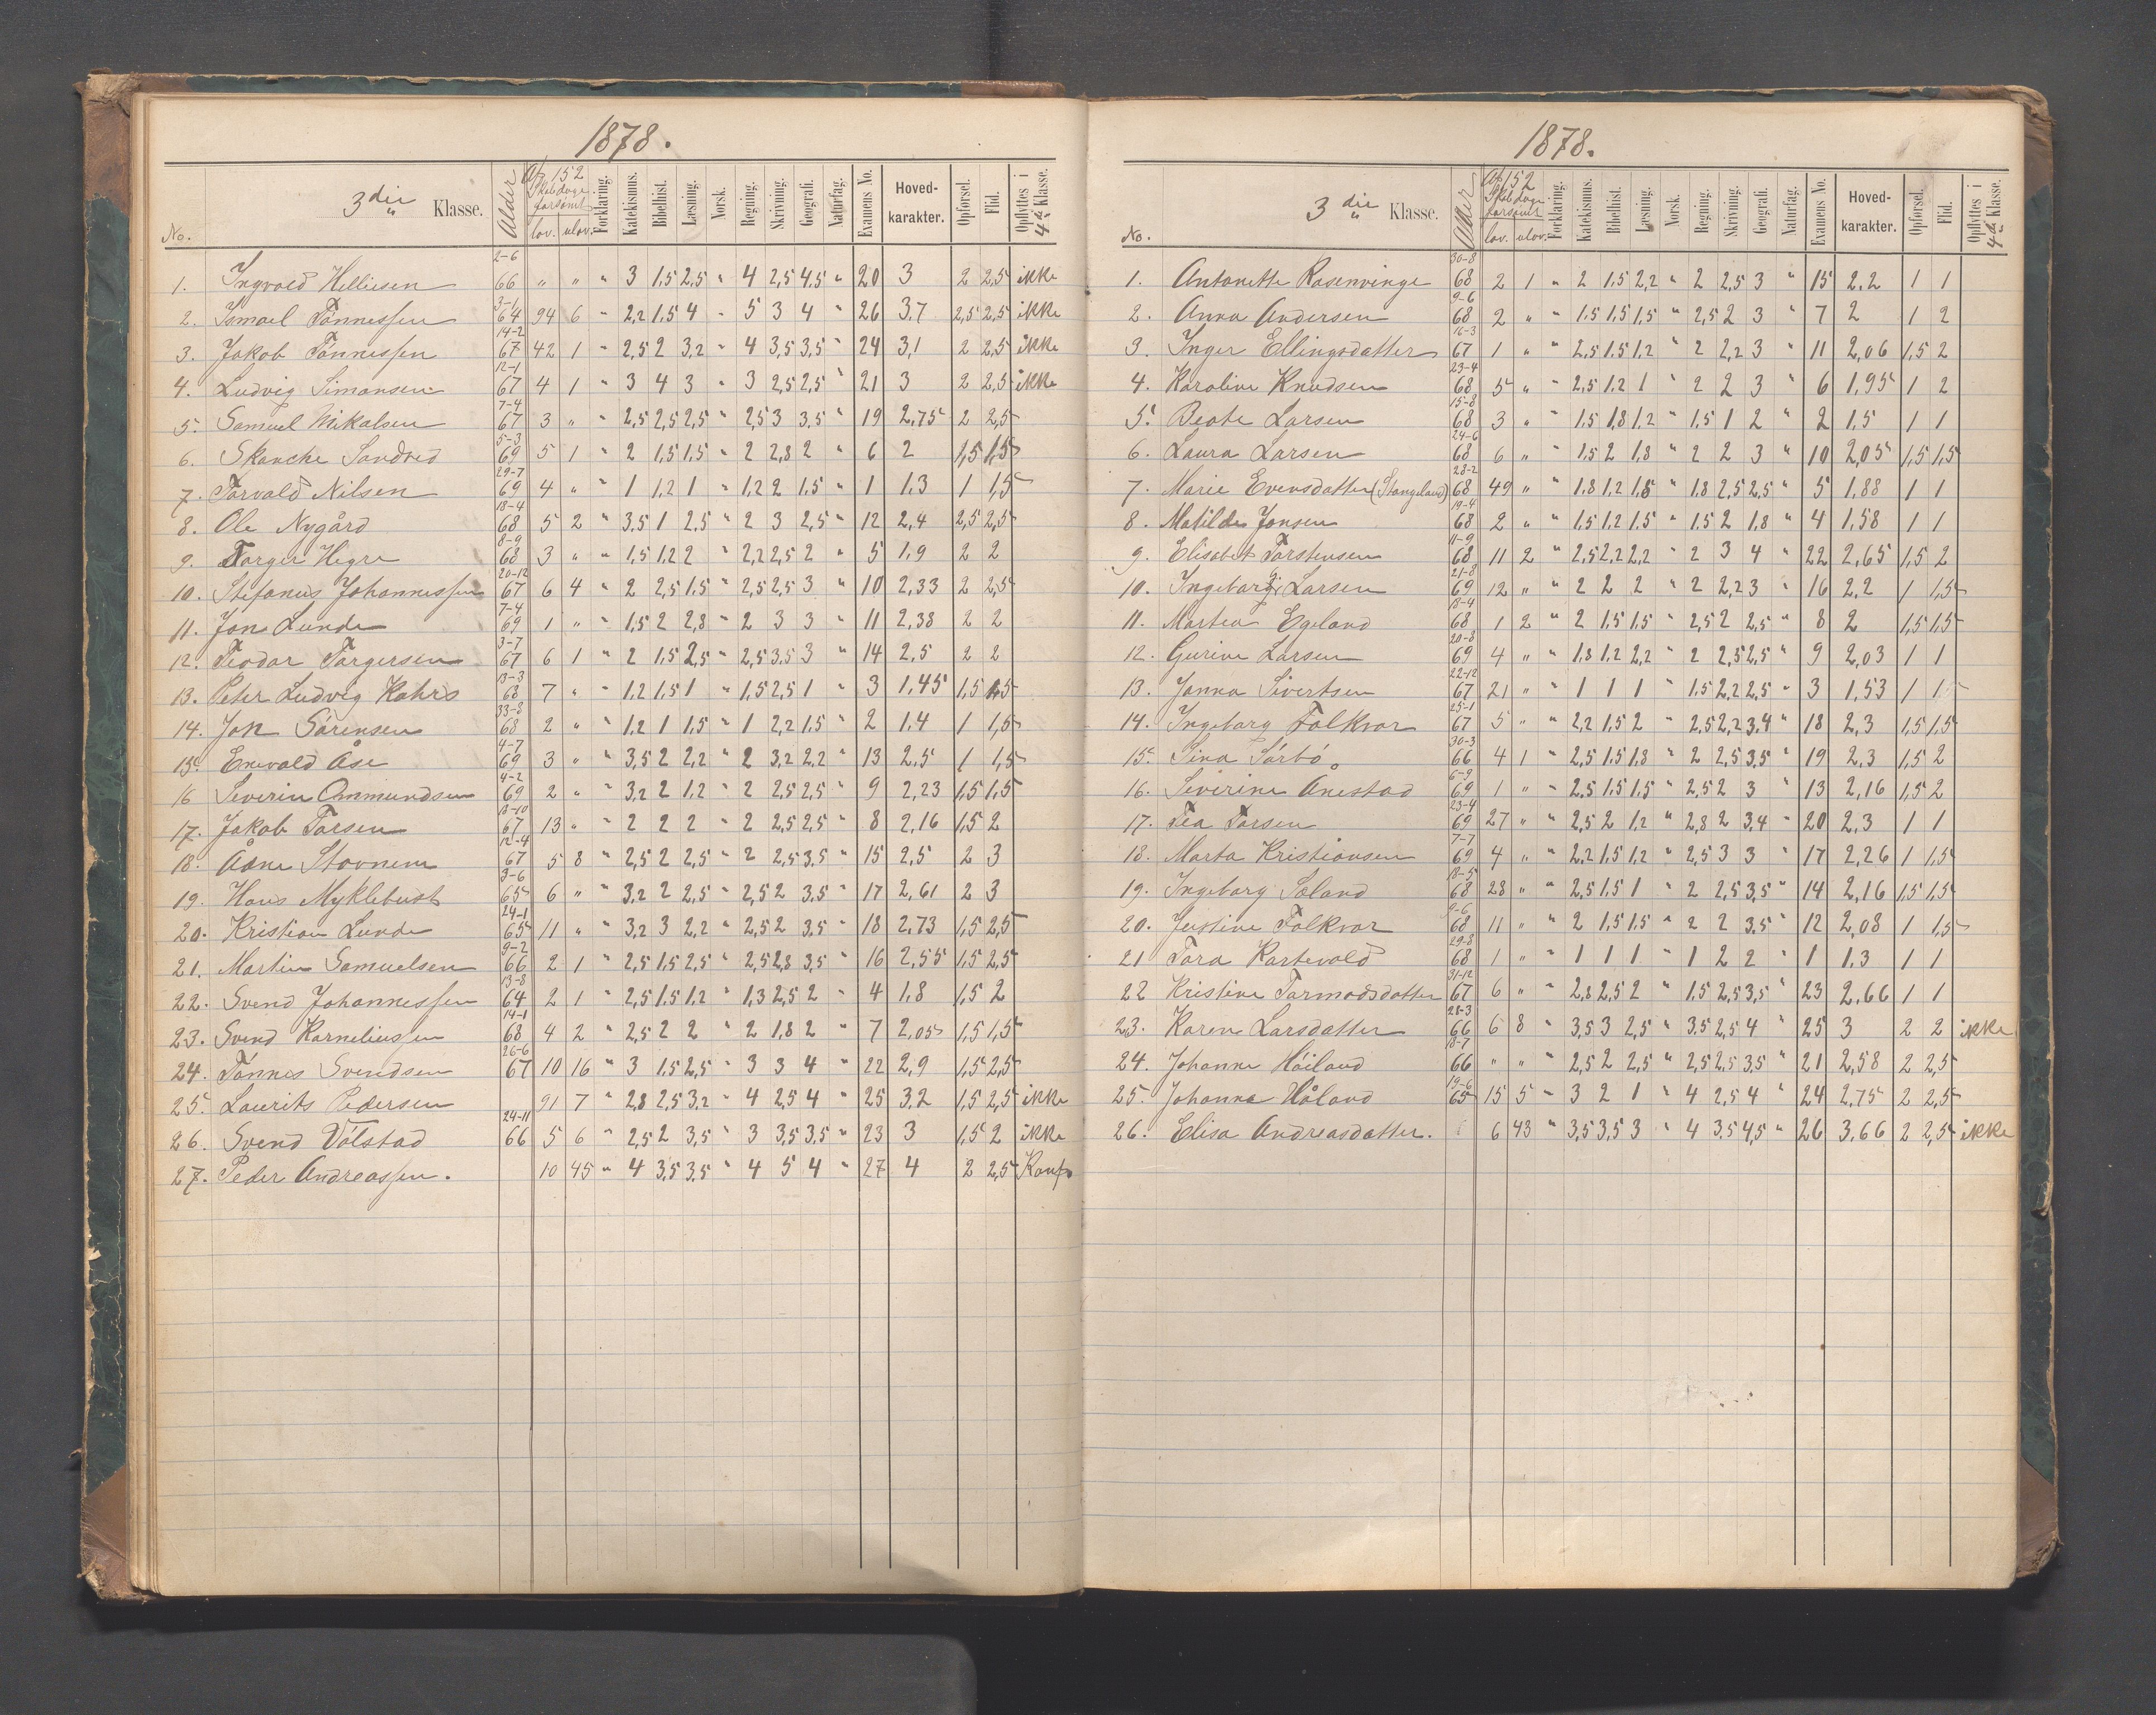 1878.
No. 3die Klasse. Alder Af 152 Skoledage forsømt lov. ulov. Forklaring. Katekismus. Bibelhist. Læsning. Norsk. Regning. Skrivning. Geografi. Naturfag. Examens No. Hovedkarakter. Opførsel. Flid. Opflyttes i 4de Klasse.
1. Ingvald Helliesen 2-6 66 " " " 3 1,5 2,5 " 4 2,5 4,5 " 20 3 2 2,5 ikke
2. Ismael Tønnessen 3-1 64 94 6 " 2,2 1,5 4 " 5 3 4 " 26 3,7 2,5 2,5 ikke
3. Jakob Tønnessen 14-2 67 42 1 " 2,5 2 3,2 " 4 3,5 3,5 " 24 3,1 2 2,5 ikke
4. Ludvig Simonsen 12-1 67 4 1 " 3 4 3 " 3 2,5 2,5 " 21 3 2 2,5 ikke
5. Samuel Mikalsen 7-4 67 3 " " 2,5 2,5 2,5 " 2,5 3 3,5 " 19 2,75 2 2,5
6. Skancke Sandved 5-3 69 5 1 " 2 1,5 1,5 " 2 2,8 2 " 6 2 1,5 1,5
7. Torvald Nilsen 29-7 69 4 " " 1 1,2 1 " 1,2 2 1,5 " 1 1,3 1 1,5
8. Ole Nygård 18-4 68 5 2 " 3,5 1 2,5 " 2 3 2,5 " 12 2,4 2,5 2,5
9. Torger Higre 8-9 68 3 " " 1,5 1,2 2 " 2,2 2,5 2 " 5 1,9 2 2
10. Stefanus Johannessen 20-12 67 6 4 " 2 2,5 1,5 " 2,5 2,5 3 " 10 2,33 2 2,5
11. Jon Lunde 7-4 69 1 " " 1,5 2 2,8 " 2 3 3 " 11 2,38 2 2
12. Teodor Torgersen 3-7 67 6 1 " 2 1,5 2,5 " 2,5 3,5 3 " 14 2,5 2 2
13. Peter Ludvig Kahrs 13-3 68 7 " " 1,2 1,5 1 " 1,5 2,5 1 " 3 1,45 1,5 1,5
14. Jon Sørensen 33-8 68 2 " " 1,2 1 1,5 " 1 2,2 1,5 " 2 1,4 1 1,5
15. Enevald Åse 4-7 69 3 " " 3,5 2 2,2 " 2 3,2 2,2 " 13 2,5 1 1,5
16 Severin Ommundsen 4-2 69 2 " " 3,2 2 1,2 " 2 2,5 2,5 " 9 2,23 1,5 1,5
17. Jakob Torsen 13-10 67 13 " " 2 2 2 " 2 2,5 2,5 " 8 2,16 1,5 2
18. Åsne Stovnem 12-4 67 5 8 " 2,5 2 2,5 " 2 2,5 3,5 " 15 2,5 2 3
19. Hans Myklebust 3-6 65 6 " " 3,2 2 2,5 " 2,5 2 3,5 " 17 2,61 2 3
20. Kristian Lunde 24-1 65 11 " " 3,2 3 2,2 " 2,5 2 3,5 " 18 2,73 1,5 2,5
21. Martin Samuelsen 9-2 66 2 1 " 2,5 1,5 2,5 " 2,5 2,8 3,5 " 16 2,55 1,5 2,5
22. Svend Johannessen 13-8 64 2 1 " 2,5 1,5 1,2 " 1,3 2,5 2 " 4 1,8 1,5 2
23. Svend Korneliussen 14-1 68 4 2 " 2,5 2 2 " 2 1,8 2 " 7 2,05 1,5 1,5
24. Tønnes Svendsen 26-6 67 10 16 " 3 1,5 2,5 " 3 3 4 " 22 2,9 1,5 2,5
25. Laurits Pedersen 91 7 " 2,8 2,5 3,2 " 4 2,5 4 " 25 3,2 1,5 2,5 ikke
26. Svend Vølstad 24-11 66 5 6 " 2,5 2 3,5 " 3 3,5 3,5 " 23 3 1,5 2 ikke
27. Peder Andreassen. 10 45 " 4 3,5 3,5 " 4 5 4 " 27 4 2 2,5 Konf.
1878.
No. 3die Klasse. Alder Af 152 Skoledage forsømt lov. ulov. Forklaring. Katekismus. Bibelhist. Læsning. Norsk. Regning. Skrivning. Geografi. Naturfag. Examens No. Hovedkarakter. Opførsel. Flid. Opflyttes i 4de Klasse.
1. Antonette Rosenvinge 30-8 68 2 1 " 2 1,5 2,2 " 2 2,5 3 " 15 2,2 1 1
2. Anna Andersen 9-6 68 2 " " 1,5 1,5 1,5 " 2,5 2 3 " 7 2 1 2
3. Inger Ellingsdatter 16-3 67 1 " " 2,5 1,5 1,2 " 2 2,2 3 " 11 2,06 1,5 2
4. Karoline Knudsen 23-4 68 5 " " 2,5 1,2 1 " 2 2 3 " 6 1,95 1 2
5. Beate Larsen 15-8 68 3 " 1,5 1,8 1,2 " 1,5 1 2 2 1,5 1 1
6. Laura Larsen 24-6 68 6 " " 1,5 2 1,8 " 2 2 3 " 10 2,05 1,5 1,5
7. Marie Evensdatter (Stangeland) 28-2 68 49 " " 1,8 1,2 1,5 " 1,8 2,5 2,5 " 5 1,88 1 1
8. Matilde Jonsen 19-4 68 2 " " 1,5 1,2 1,5 " 1,5 2 1,8 " 4 1,58 1 1
9. Elisabet Torstensen 11-9 68 11 2 " 2,5 2,2 2,2 " 2 3 4 " 22 2,65 1,5 2
10. Ingeborg Larsen 21-8 69 12 " " 2 2 2 " 2 2,2 3 " 16 2,2 1 1,5
11. Martea Egeland 18-4 68 1 2 " 2 1,5 1,5 " 2,5 2 2,5 " 8 2 1,5 1,5
12. Gurine Larsen 20-8 69 4 " " 1,8 1,2 2,2 " 2 2,5 2,5 " 9 2,03 1 1
13. Janna Sivertsen 22-12 67 21 " " 1 1 1 " 1,5 2,2 2,5 " 3 1,53 1 1
14. Ingeborg Folkvor 25-1 67 5 " " 2,2 1,5 2 " 2,5 2,2 3,4 " 18 2,3 1,5 1,5
15. Sina Sørbø. 30-3 66 4 1 " 2,5 1,5 1,8 " 2 2,5 3,5 " 19 2,3 1,5 2
16. Siverine Anestad 6-9 69 1 " " 2,5 1,5 1,5 " 2,5 2 3 " 13 2,16 1,5 2
17. Tea Torsen 23-4 69 27 " " 2,5 2 1,2 " 2,8 2 3,4 " 20 2,3 1 1
18. Marta Kristiansen 7-7 69 4 " " 2,2 1,5 1,2 " 2,5 3 3 " 17 2,26 1 1,5
19. Ingeborg Soland 18-5 68 28 " " 2,5 1,5 1 " 2 2,5 3,5 " 14 2,16 1,5 1,5
20. Justine Folkvor 9-6 68 11 " " 2 1,5 1,5 " 2 2 3,5 " 12 2,08 1 1,5
21 Tora Kartevold 29-8 68 1 " " 1 1 1 " 1 2 2 " 1 1,3 1 1
22 Kristine Tarmodsdatter 31-12 67 6 " " 2,8 2,5 2 " 1,5 2,5 3,5 " 23 2,66 1 1
23. Karen Larsdatter 28-3 66 6 8 " 3,5 3 2,5 " 3,5 2,5 4 " 25 3 2 2 ikke
24. Johanne Høiland 18-7 66 " " " 2,5 2 2,5 " 2,5 2,5 3,5 " 21 2,58 2 2,5
25. Johanna Håland 19-6 65 15 5 " 3 2 1 " 4 2,5 4 " 24 2,75 2 2,5
26. Elisa Andreasdatter. 6 43 " 3,5 3,5 3 " 4 3,5 4,5 " 26 3,66 2 2,5 ikke